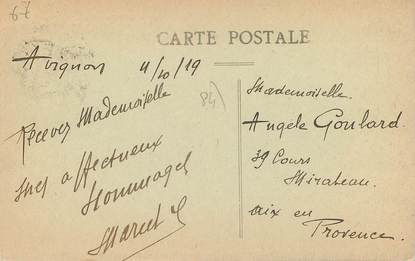 67
CARTE POSTALE
Avignon 4/10/19
Recevez Mademoiselle
mes affectueux
Hommages
Marcel
84)
Mademoiselle
Angele Goulard.
39 Cours
Mirabeau.
Aix en
Provence.